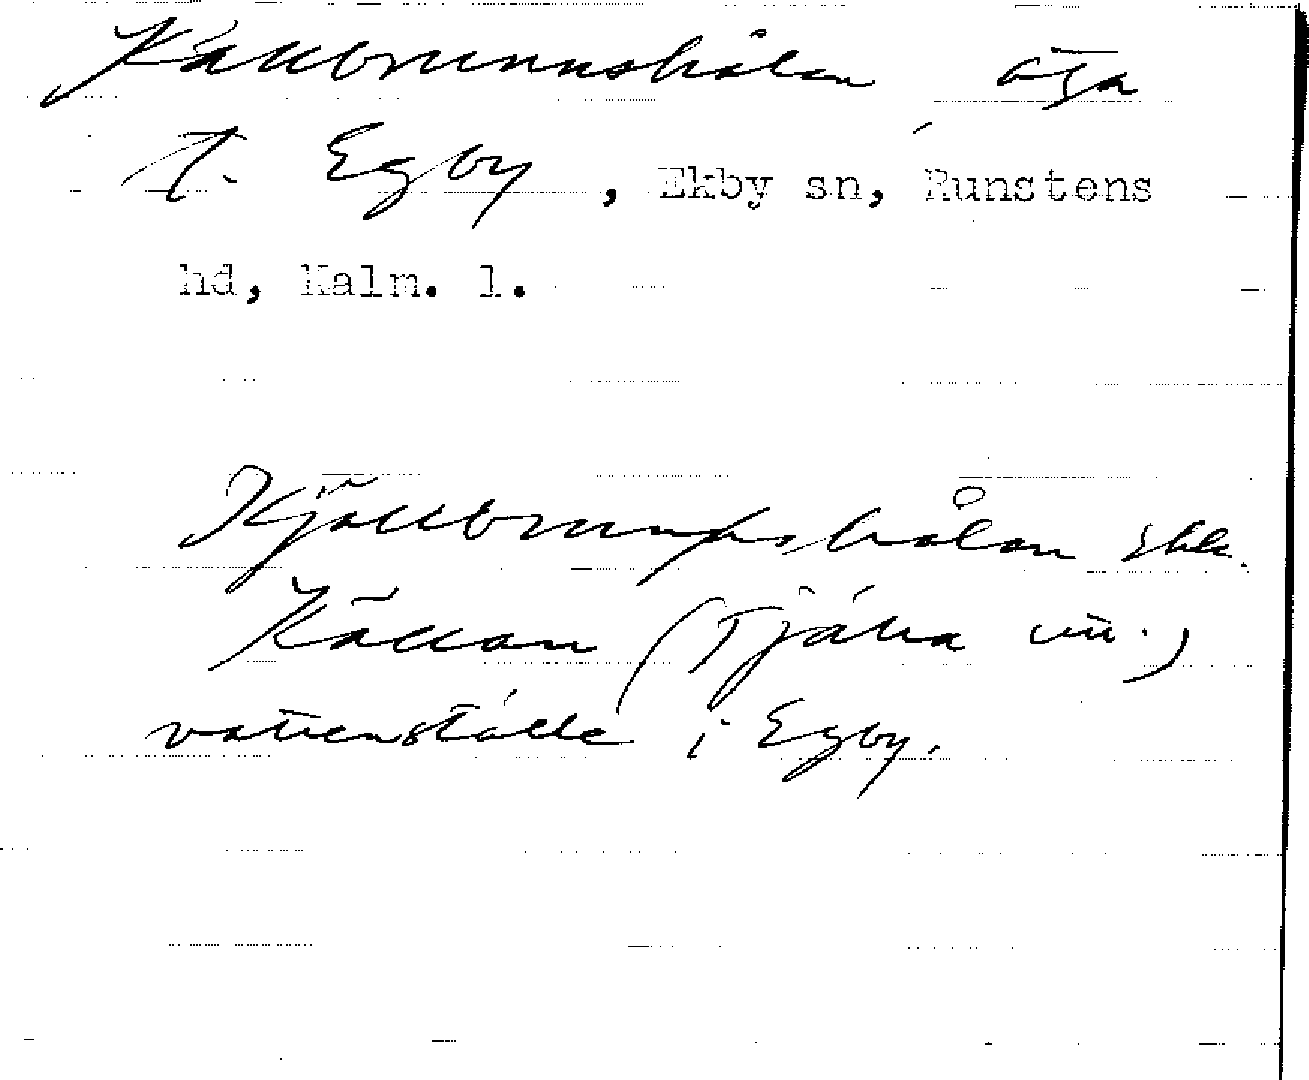 Källbrunnshålan äga
t. Egby, Ekby sn, Runstens
hd, Kalm. l.
Kjällbrunnshålan
Källan (Tjälla
vattenställe i Egby.